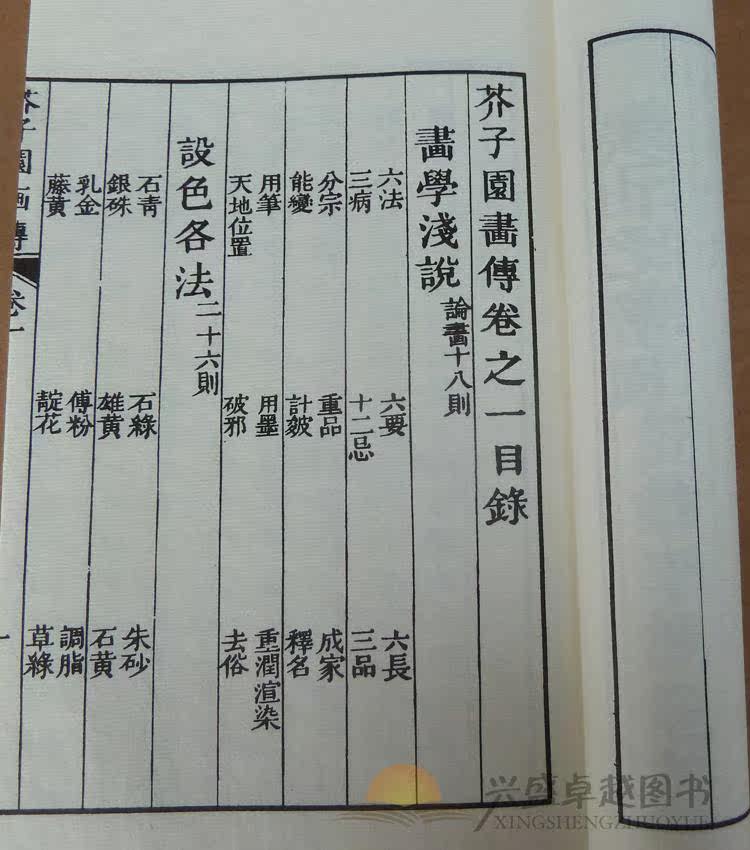 芥子園畫傳卷之一目錄
畫學淺說 論畫十八則
六法 六要 六長
三病 十二忌 三品
分宗 重品 成家
能變 計皴 釋名
用筆 用墨 重潤渲染
天地位置 破邪 去俗
設色各法 二十六則
石青 石綠 朱砂
銀硃 雄黃 石黃
乳金 傅粉 調脂
藤黃 靛花 草綠
芥子園画傳 卷一
一
兴盛卓越图书
XINGSHENGZHUOYUE